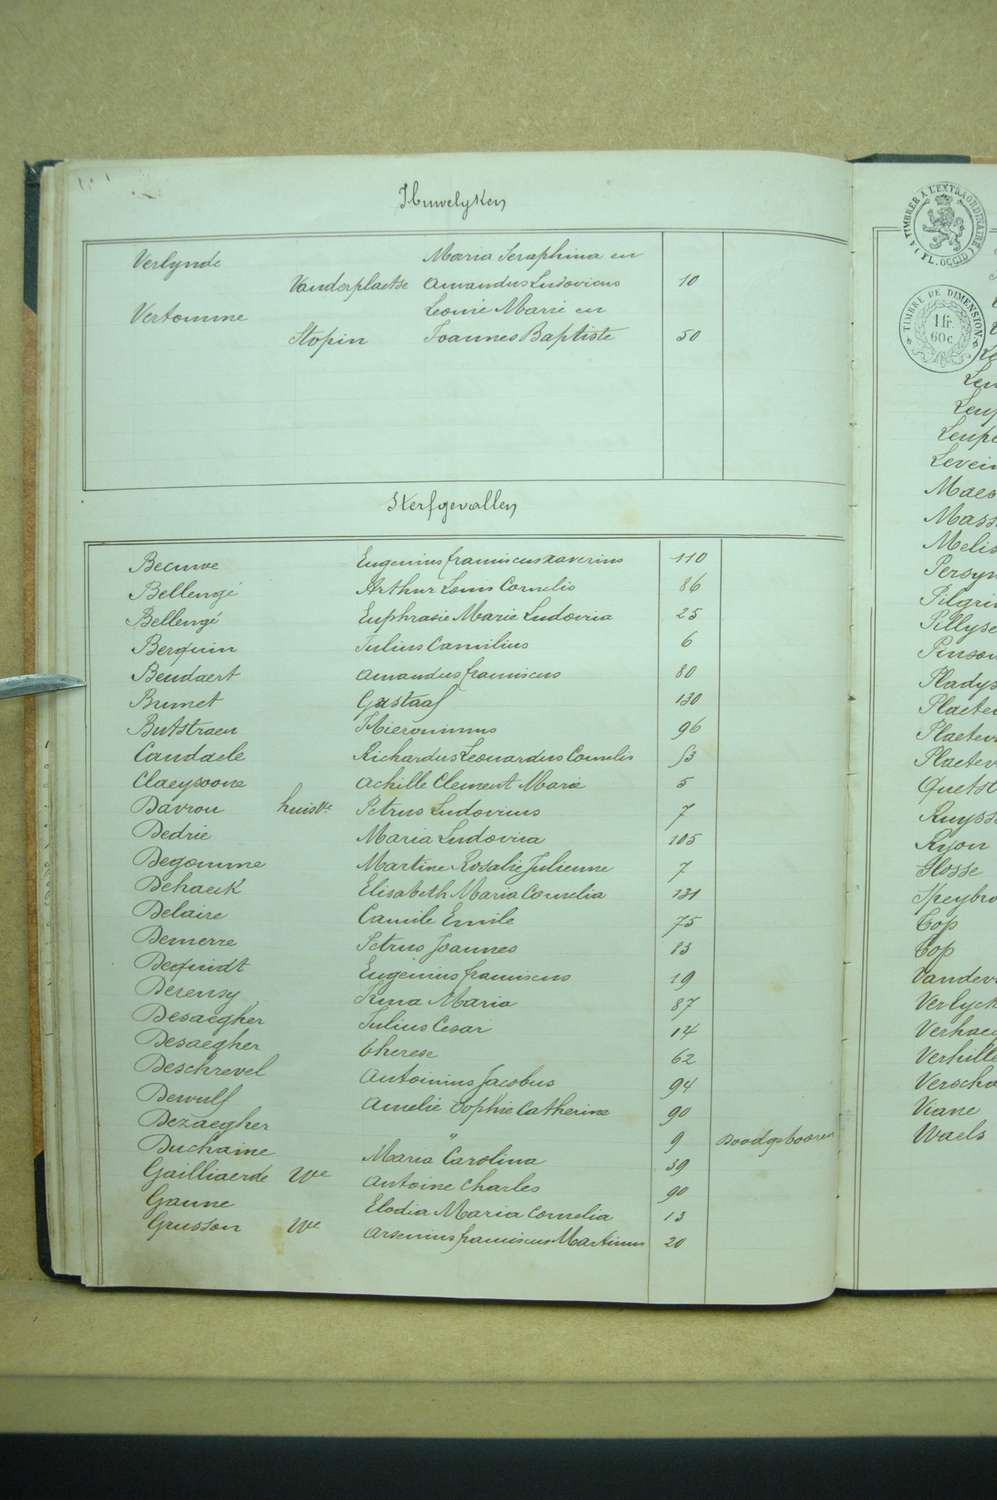 Huwelyken
Verlynde Maria Seraphina en
Vanderplaetse Amandus Ludovicus 10
Vertomme Leonie Marie en
Stopin Joannes Baptiste 50
Sterfgevallen
Becuwe Eugenius franciscus xaverius 110
Bellengé Arthur Louis Cornelis 86
Bellengé Euphrasie Marie Ludovica 25
Berquin Julius Camilius 6
Beudaert Amandus franciscus 80
Brunet Gustaaf 130
Butstraen Hieronimus 96
Candaele Richardus Leonardus Cornelis 53
Claeysoone Achille Clement Marie 5
Davrou huisve Petrus Ludovicus 7
Dedrie Maria Ludovica 105
Degomme Martine Rosalie Julienne 7
Dehaeck Elisabeth Maria Cornelia 131
Delaire Camile Emile 75
Demerre Petrus Joannes 83
Dequidt Eugenius franciscus 19
Derensy Irma Maria 87
Desaegher Julius Cesar 14
Desaegher Therese 62
Deschrevel Antoinius Jacobus 94
Dewulf Amelie Sophie Catherine 90
Dezaegher " 9 Doodgebooren
Duchaine Maria Carolina 39
Gailliaerde We Antoine Charles 90
Gaune Elodia Maria Cornelia 13
Grusson We Arsenius franciscus Martinus 20
TIMBRER A L'EXTRAORDINAIRE
(FL. OCCID)
TIMBRE DE DIMENSION
1 fr.
60 c
Leup
Leupe
Levein
Maes
Mass
Melis
Persyn
Pilgri
Pillyse
Pinson
Pladys
Plaetev
Plaetev
Plaetev
Quetst
Ruysse
Ryon
Slosse
Speybro
Top
Top
Vandev
Verlyck
Verhaeg
Verhille
Verscha
Viane
Waels